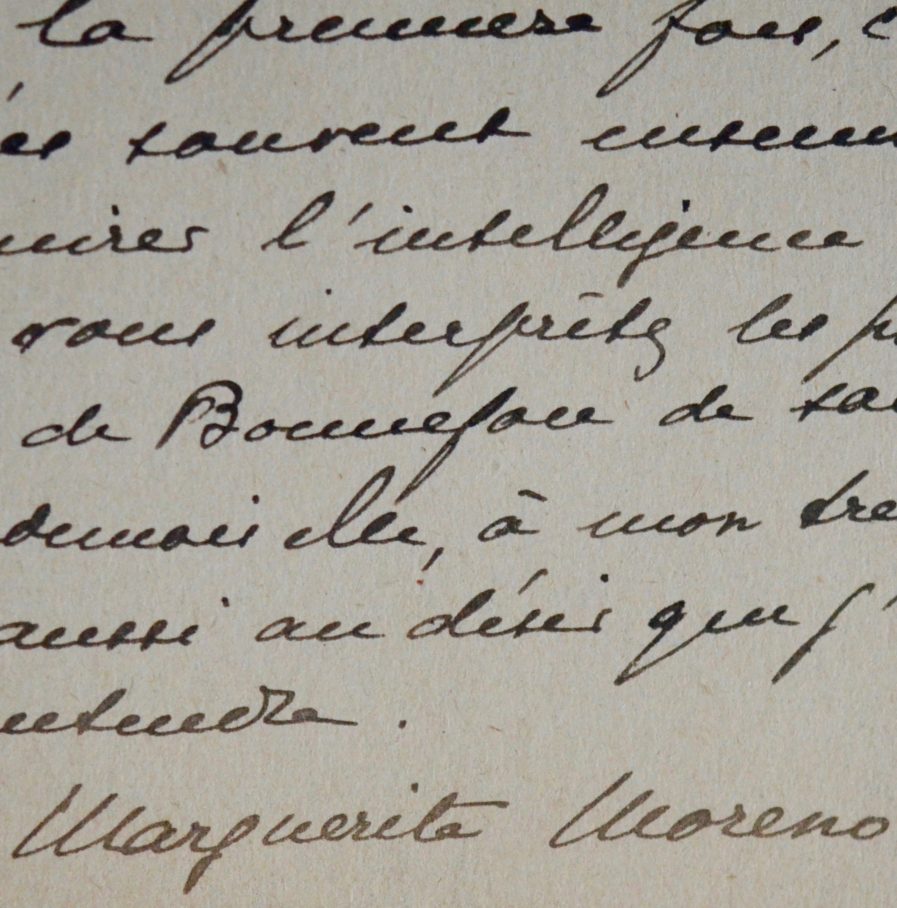 la première fois, c
souvent
mirer l'intelligence
vous interprétez les p
de Bonnefon de
demoiselle, à mon
aussi au désir que j'
entendre.
Marguerite Moreno